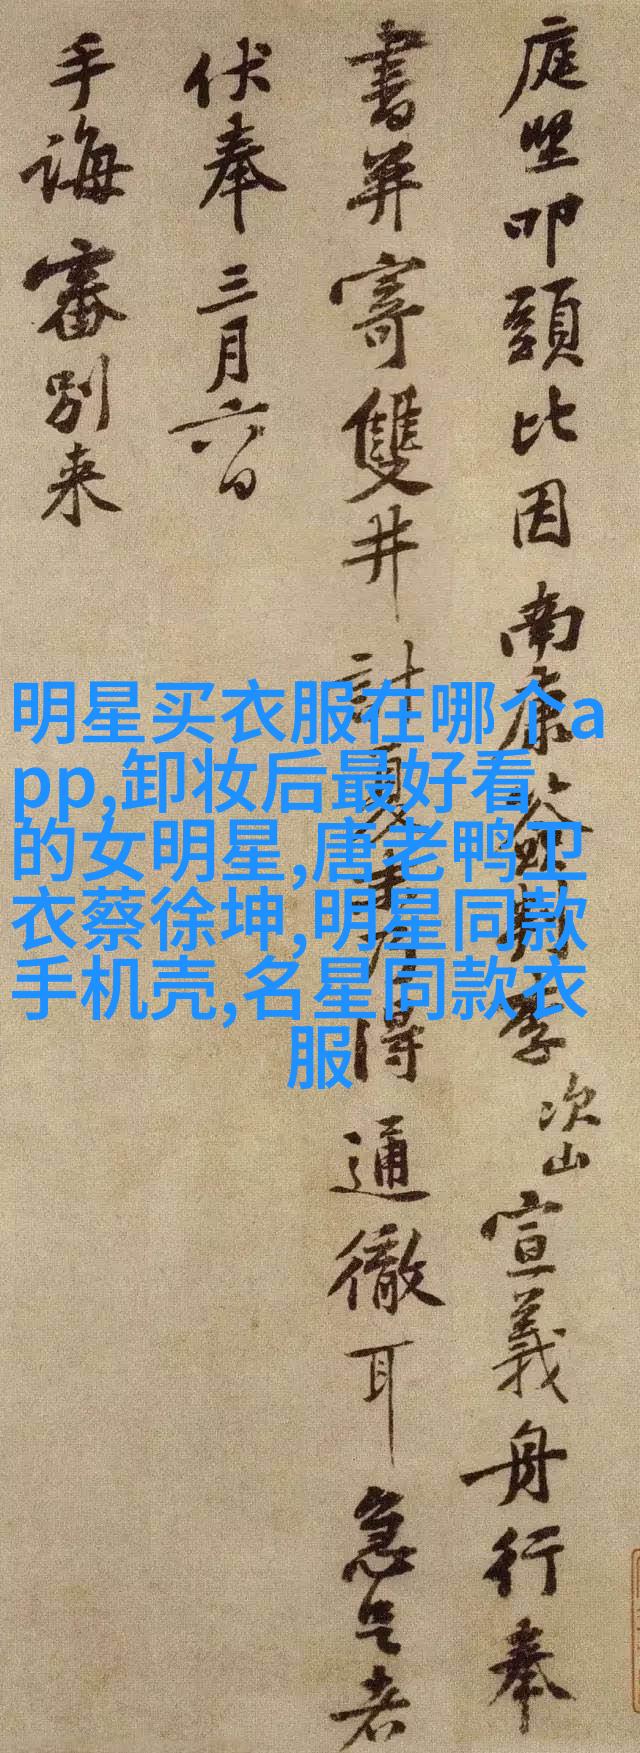 庭堅叩頭比因南康簽判李次山宣義舟行奉
書并寄雙井計夏末可得通徹耳急足者
伏奉三月六日
手誨審別来
明星买衣服在哪个a
pp,卸妆后最好看
的女明星,唐老鸭卫
衣蔡徐坤,明星同款
手机壳,名星同款衣
服